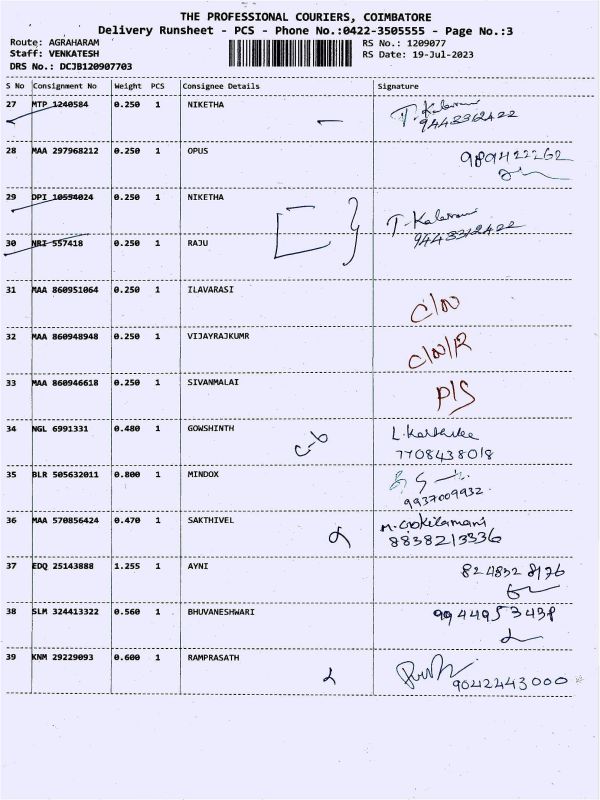 THE PROFESSIONAL COURIERS, COIMBATORE
Delivery Runsheet - PCS - Phone No.:0422-3505555 - Page No.:3
Route: AGRAHARAM RS No.: 1209077
Staff: VENKATESH RS Date: 19-Jul-2023
DRS No.: DCJB120907703
S No Consignment No Weight PCS Consignee Details Signature
27 MTP 1240584 0.250 1 NIKETHA
28 MAA 297968212 0.250 1 OPUS
29 DPI 10594024 0.250 1 NIKETHA
30 NRI 557418 0.250 1 RAJU
31 MAA 860951064 0.250 1 ILAVARASI
C/N
32 MAA 860948948 0.250 1 VIJAYRAJKUMR
C/N/R
33 MAA 860946618 0.250 1 SIVANMALAI
P/S
34 NGL 6991331 0.480 1 GOWSHINTH
7708438018
35 BLR 505632011 0.800 1 MINDOX
9937009932
36 MAA 570856424 0.470 1 SAKTHIVEL
8838213336
37 EDQ 25143888 1.255 1 AYNI
38 SLM 324413322 0.560 1 BHUVANESHWARI
9944953438
39 KNM 29229093 0.600 1 RAMPRASATH
9042443000